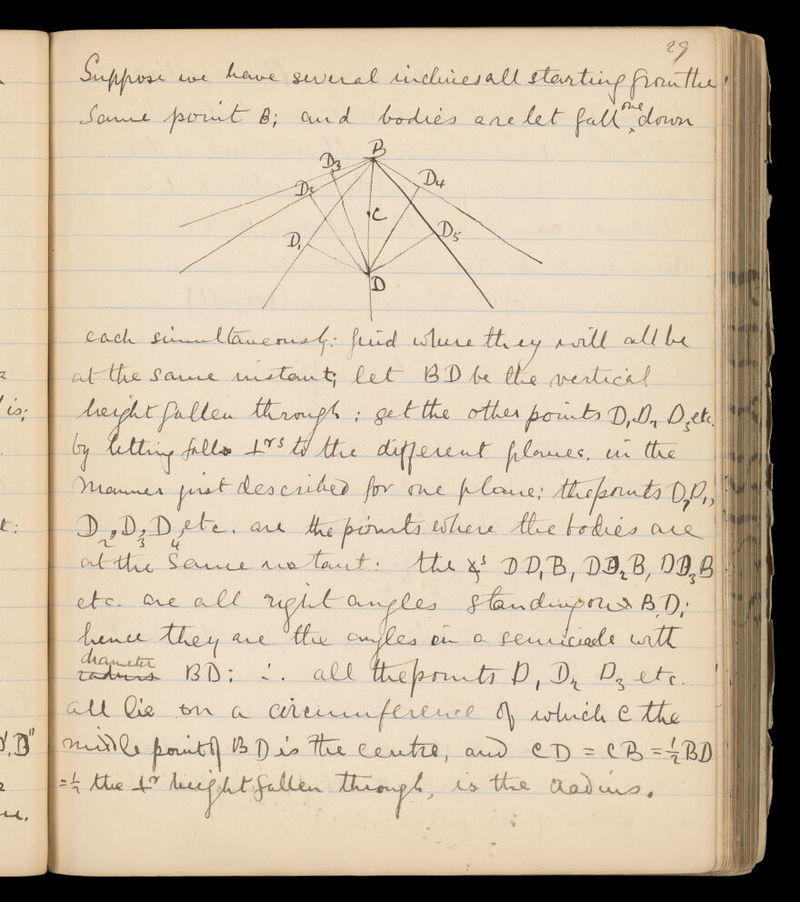 29
Suppose we have several inclines all starting from the
same point B; and bodies are let fall one down
B
D3
D2
D4
C
D1
D5
D
each simultaneously: find where they will all be
at the same instant; let BD be the vertical
height fallen through; get the other points D1 D2 D3 etc.
by letting fall ⊥rs to the different planes, in the
manner just described for one plane; the points D, D1,
D2, D3, D4 etc. are the points where the bodies are
at the same instant: the ∠s DD1B, DD2B, DD3B
etc. are all right angles standing on BD;
hence they are the angles in a semicircle with
diameter
radius BD; ∴ all the points D1 D2 D3 etc.
all lie on a circumference of which C the
middle point of BD is the centre, and CD = CB = ½BD
= ½ the ⊥r height fallen through, is the radius.